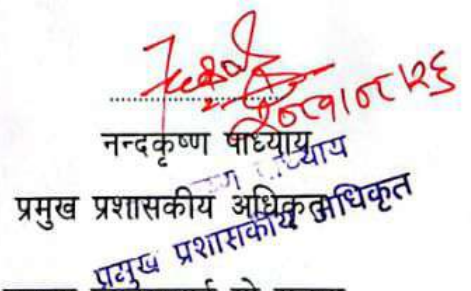 २०८१।०८।२६
नन्दकृष्ण पाध्याय
प्रमुख प्रशासकीय अधिकृत
प्रमुख प्रशासकीय अधिकृत